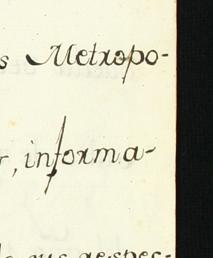 s Metropo-
r, informa-
que